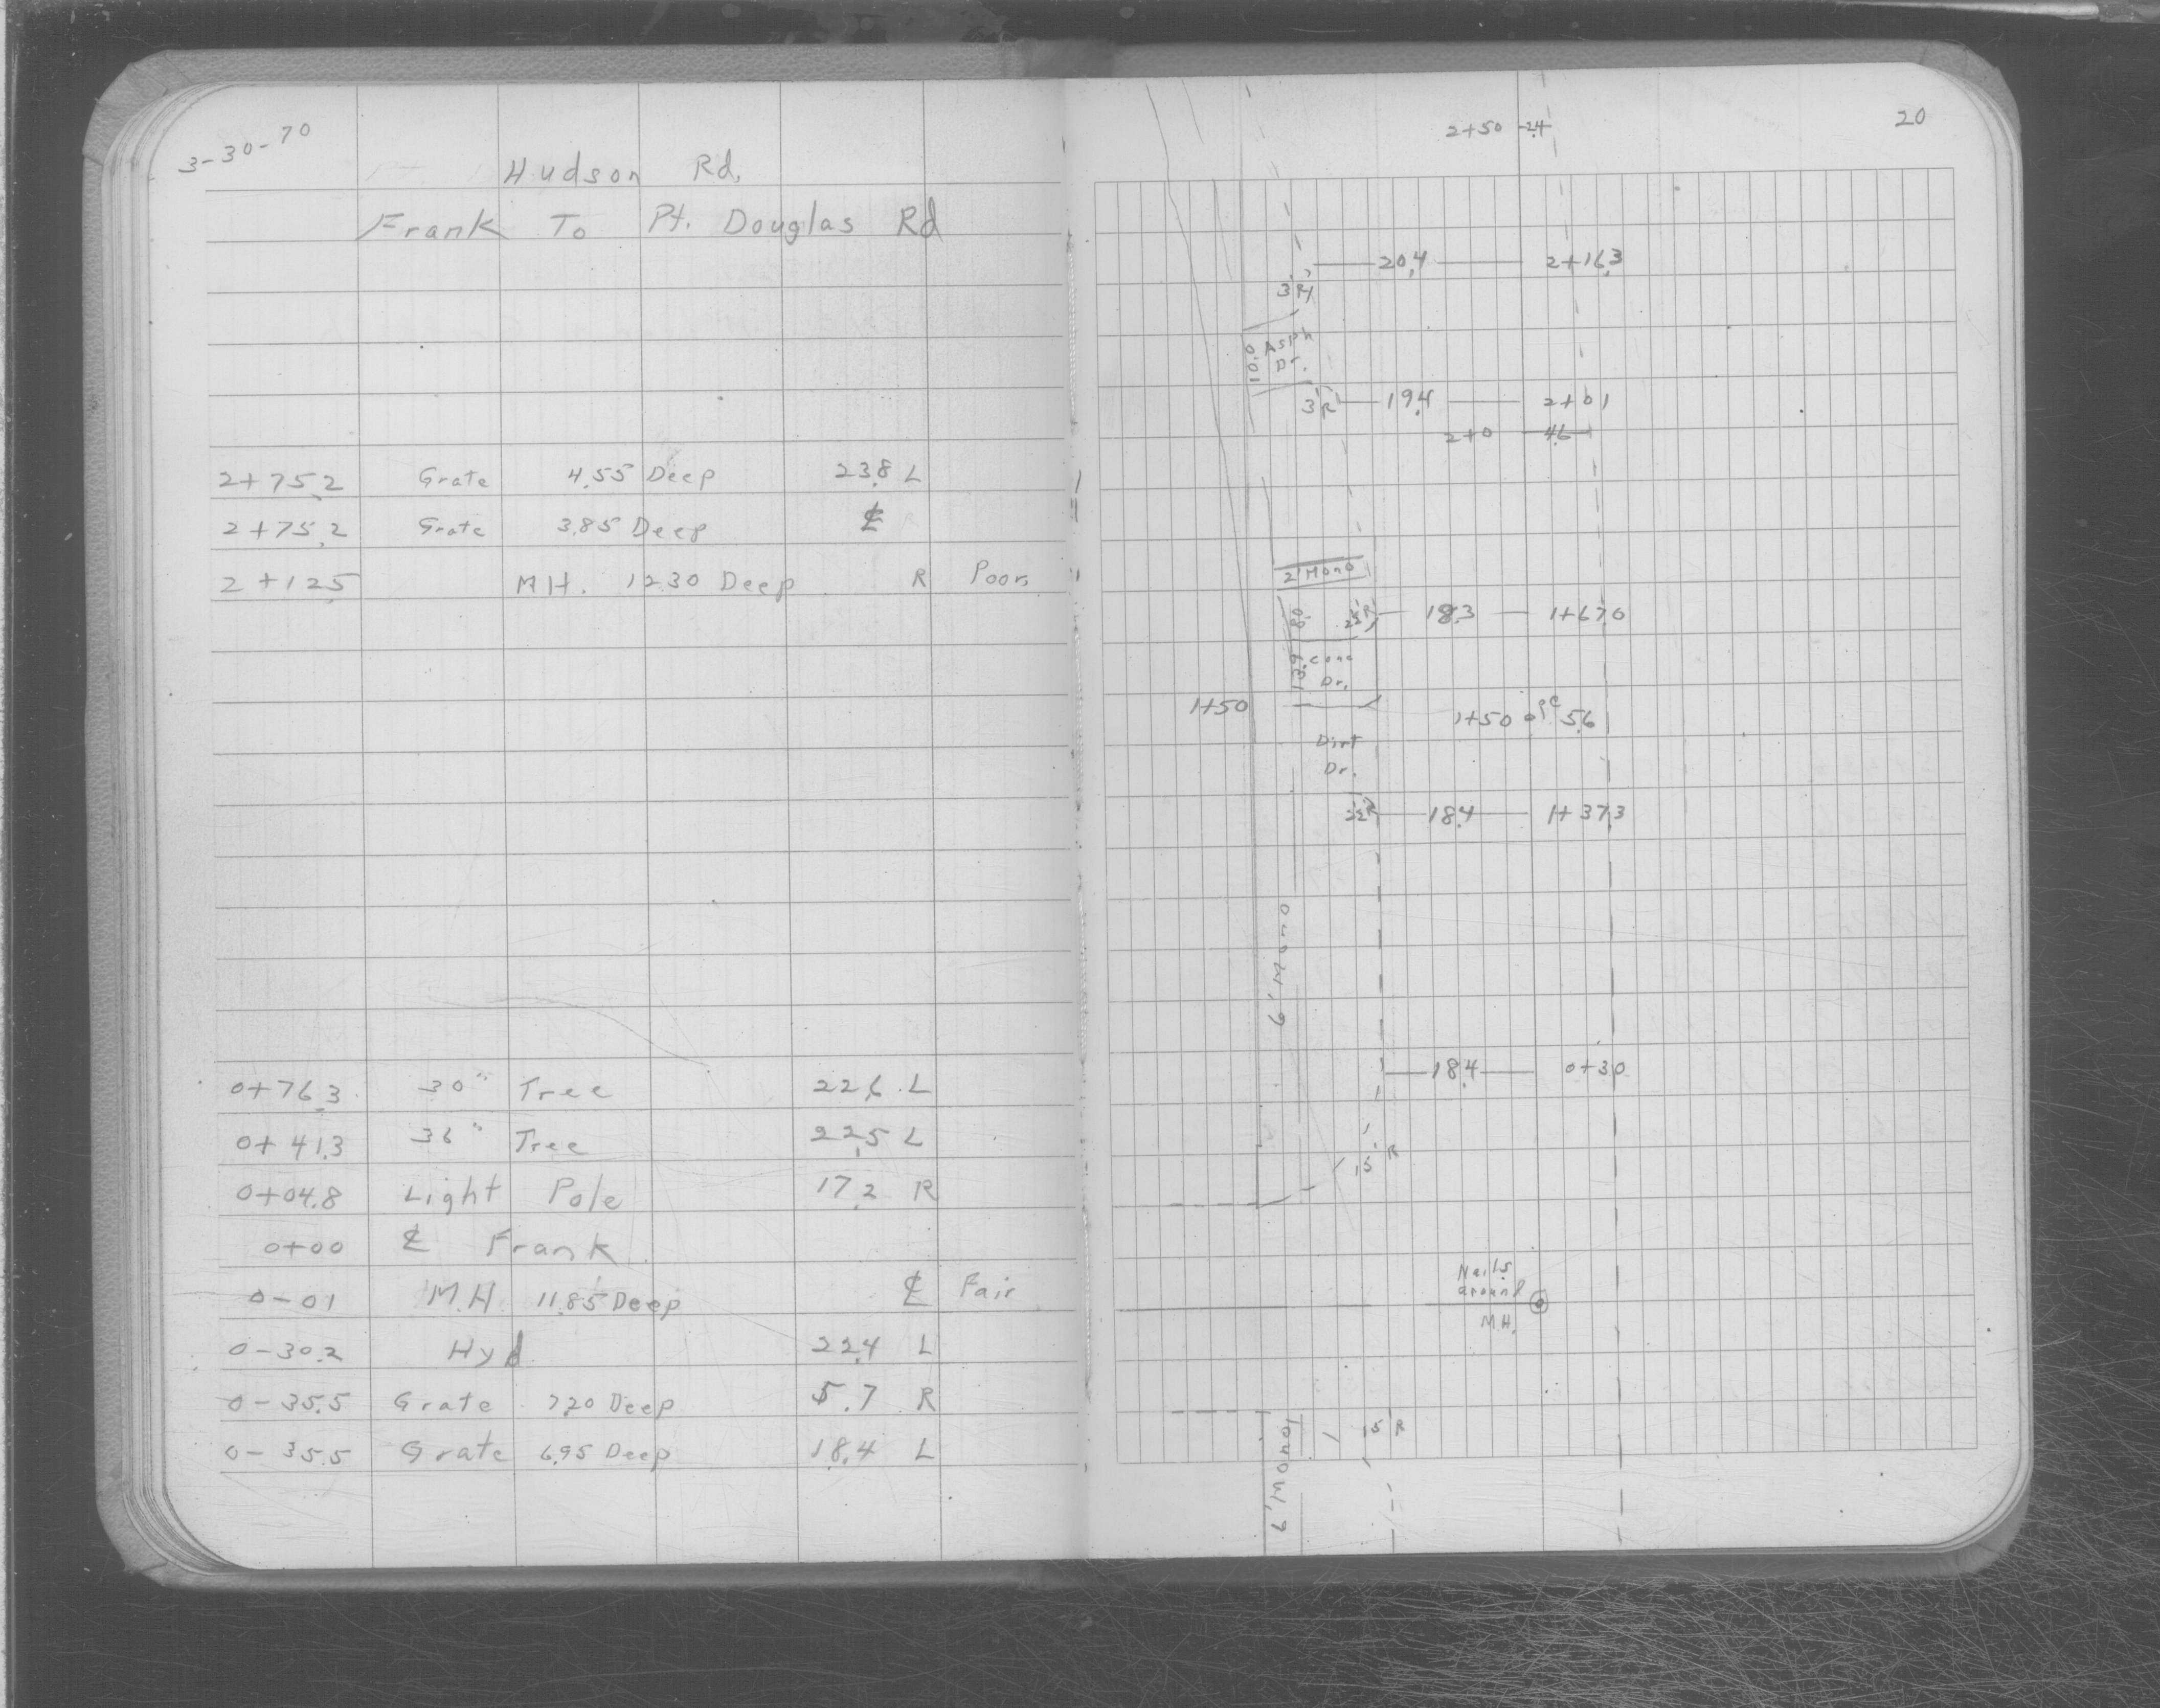 3-30-70
Hudson Rd.
Frank To Pt. Douglas Rd
2+75.2 Grate 4.55 Deep 23.8 L
2+75.2 Grate 3.85 Deep ℄
2+12.5 MH. 12.30 Deep R Poor
0+76.3 30" Tree 22.6 L
0+41.3 36" Tree 22.5 L
0+04.8 Light Pole 17.2 R
0+00 ℄ Frank
0-01 M.H 11.85 Deep ℄ Fair
0-30.2 Hyd 22.4 L
0-35.5 Grate 7.20 Deep 5.7 R
0-35.5 Grate 6.95 Deep 18.4 L
20
2+50 2.4
20.4 2+16.3
3R
10.0 Asph
Dr.
3R 19.4 2+01
2+0 4.6
2' Mono
8.0 18.3 1+67.0
13.9 Conc
Dr.
1+50 1+50 5.6
Dirt
Dr.
18.4 1+37.3
6' Mono
18.4 0+30
15 R
Nails
around
M.H.
15 R
6' Mono